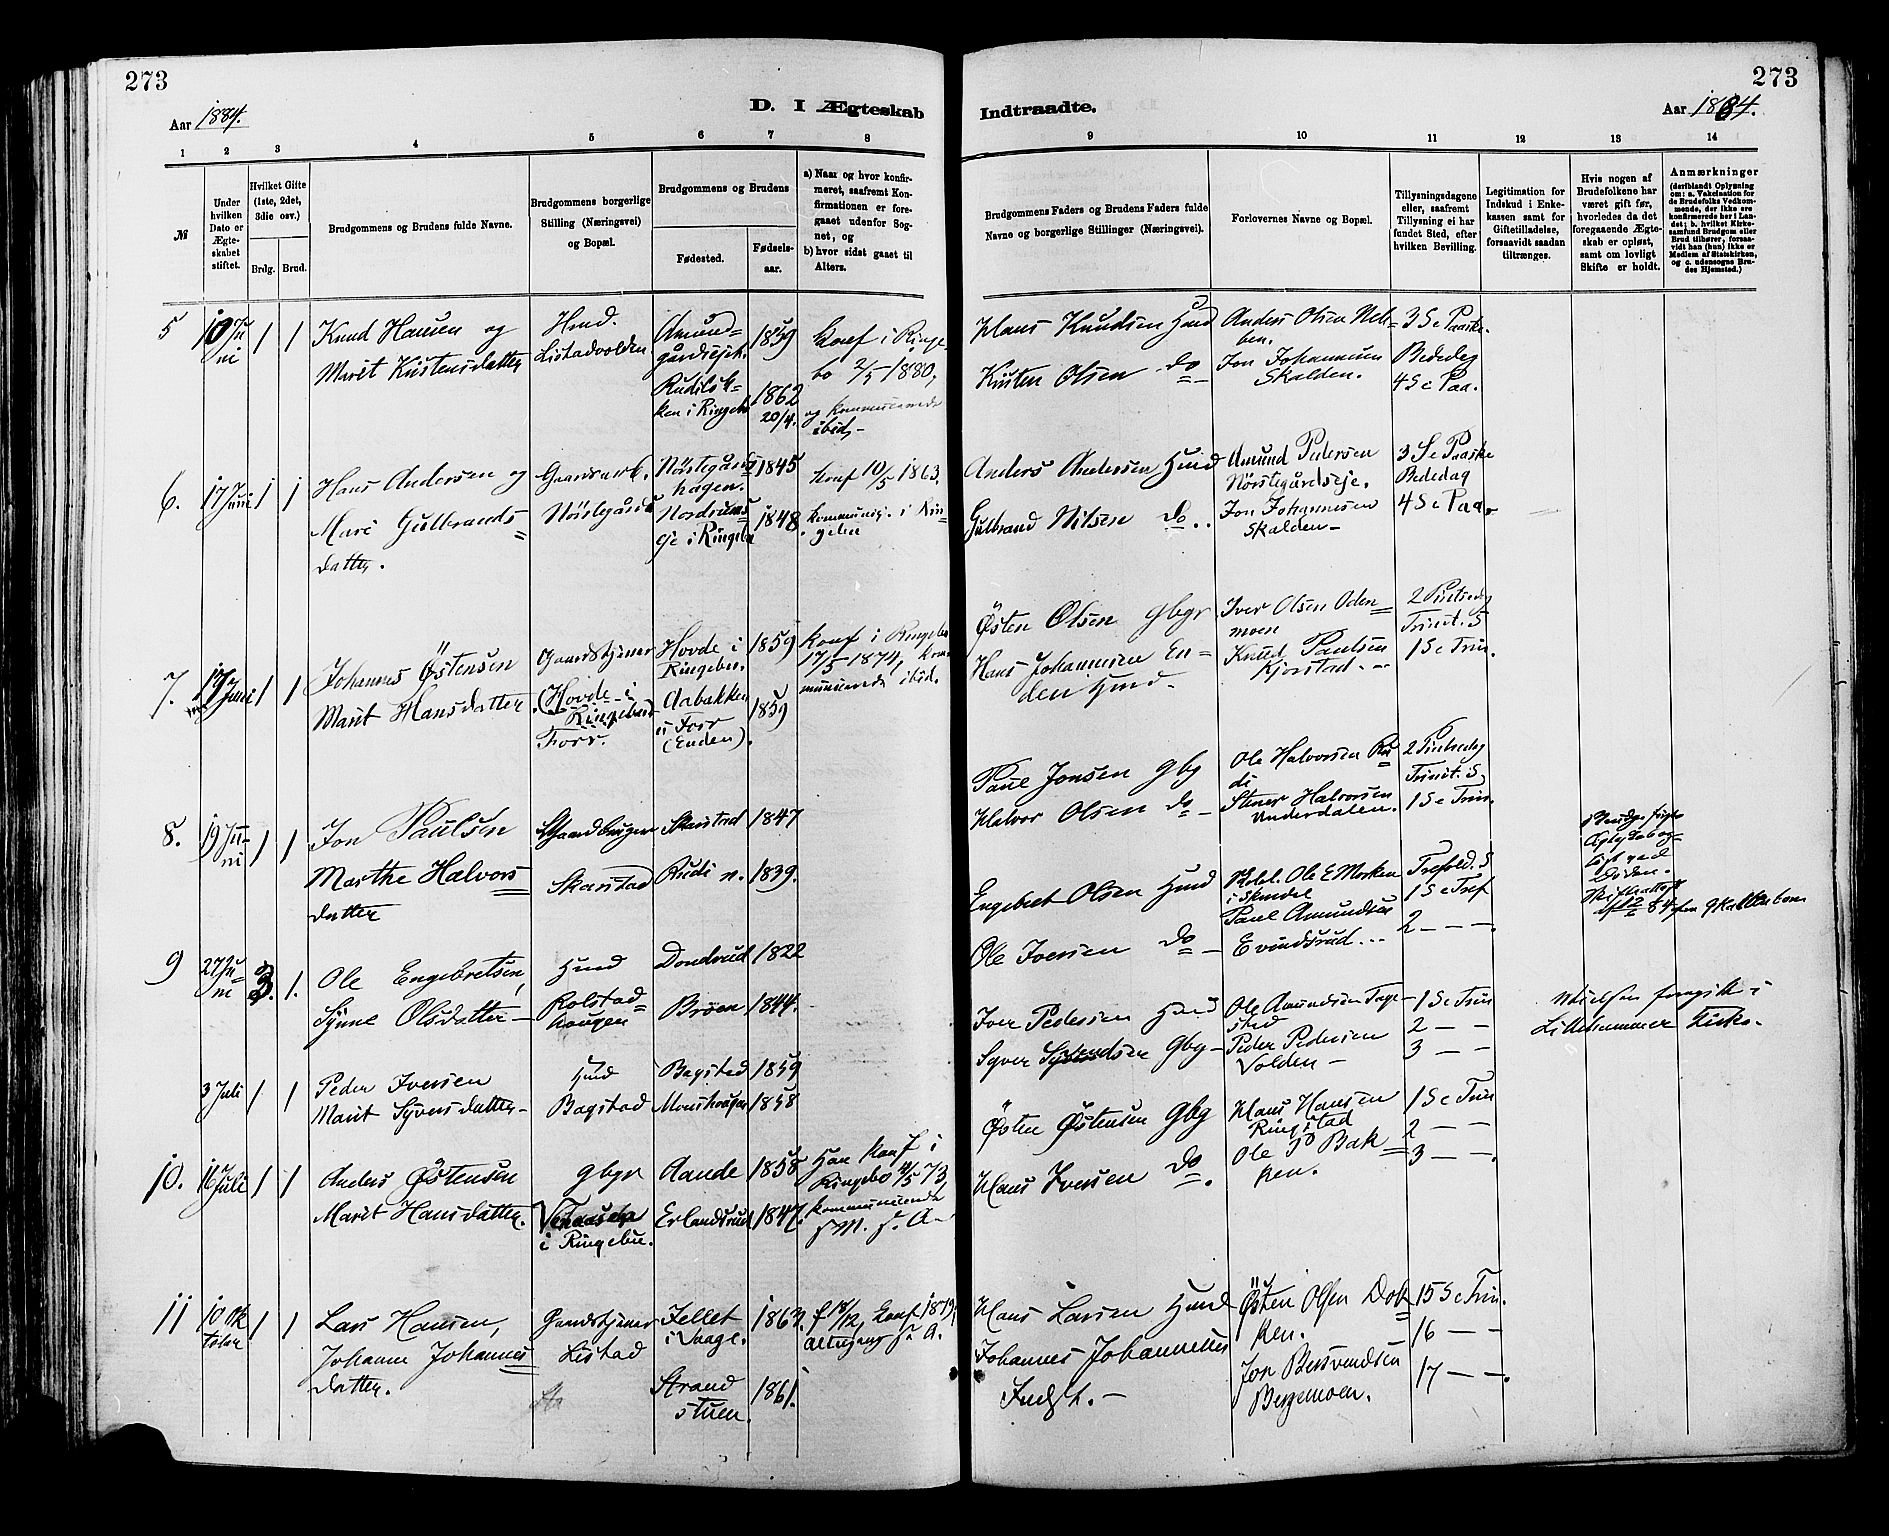 273
Aar 1884.
D. I Ægteskab
1 2 3 4 5 6 7 8
№
Under hvilken Dato er Ægteskabet stiftet.
Hvilket Gifte (1ste, 2det, 3die osv.)
Brdg. Brud.
Brudgommens og Brudens fulde Navne.
Brudgommens borgerlige Stilling (Næringsvei) og Bopæl.
Brudgommens og Brudens
Fødested.
Fødsels-aar.
a) Naar og hvor konfirmeret, saafremt Konfirmationen er foregaaet udenfor Sognet, og
b) hvor sidst gaaet til Alters.
5 10 Juni 1 1 Knud Hansen og
Marit Kristensdatter
Hmd.
Listadvolden
Amundgårdsejet.
Rudiløkken i Ringebu
1859
1862
20/4.
Konf i Ringebo 2/5 1880,
og kommunicerede ibid,
6. 17 Juni 1 1 Hans Andersen og
Mari Gulbrandsdatter.
Gaardmark.
Nörstegård
Nörstegårdshagen.
Nordrumseje i Ringebu
1845
1848
konf 10/5 1863.
kommunic. i Ringebu
7. 17 Juni 1 1 Johannes Östensen
Marit Hansdatter
Gaardstjener
(Hovde i Ringebu
Forr.
Hovde i Ringebu.
Aabakken i Forr (Enden).
1859
1859
konf i Ringebu 17/5 1874, kommunicerede ibid.
8. 19 Juni 1 1 Jon Paulsen
Marthe Halvorsdatter
Gaardbruger
Skarstad
Skarstad
Rudi n.
1847
1839.
9 27 Juni 3. 1. Ole Engebretsen,
Synne Olsdatter
Hmd
Rolstadhaugen
Dondrud
Bröen
1822
1844.
3 Juli 1 1 Peder Iversen
Marit Syversdatter
Hmd
Bagstad
Bagstad
Monshaugen
1859
1858
10. 16 Juli 1 1 Anders Östensen
Marit Hansdatter.
Gbgr
i Ringebu.
Aande
Erlandsrud
1858
1847.
Han konf i Ringebo 4/5 73,
kommunicerede
11 10 Oktober 1 1 Lars Hansen,
Johanne Johannesdatter.
Gaardstjener
Listad
Jellet i Vaage.
Strandstuen.
1863.
1861.
f 18/12, konf 1879,
altergang
273
Aar 1884.
Indtraadte.
9 10 11 12 13 14
Brudgommens Faders og Brudens Faders fulde Navne og borgerlige Stillinger (Næringsvei).
Forlovernes Navne og Bopæl.
Tillysningsdagene eller, saafremt Tillysning ei har fundet Sted, efter hvilken Bevilling.
Legitimation for Indskud i Enkekassen samt for Giftetilladelse, forsaavidt saadan tiltrænges.
Hvis nogen af Brudefolkene har været gift før, hvorledes da det foregaaende Ægteskab er opløst, samt om lovligt Skifte er holdt.
Anmærkninger
(deriblandt Oplysning om: a. Vakcination for de Brudefolks Vedkommende, der ikke ere konfirmerede her i Landet; b. hvilket Kirkesamfund Brudgom eller Brud tilhører, forsaavidt han (hun) ikke er Medlem af Statskirken, og c. udensogns Brudes Hjemsted.)
Hans Knudsen Hmd
Kristen Olsen do
Anders Olsen
Jon Johannesen Skalden.
3 S e Paaske.
Bededag
4 S e Paa.
Anders Andersen Hmd
Gulbrand Nilsen do..
Amund Pedersen Nörstegårdseje.
Jon Johannesen Skalden
3 S e Paaske
Bededag
4 S e Paa.
Östen Olsen Gbgr
Hans Johannesen Enden Hmd.
Iver Olsen Odenmoen
Knud Paulsen Kjorstad
2 Pintsedag
Trinit. S
1 S e Trin.
Paul Jonsen Gbg
Halvor Olsen do
Ole Halvorsen Rudi
Stener Halvorsen Underdalen.
2 Pintsedag
Trinit. S
1 S e Trin.
Engebret Olsen Hmd
Ole Iversen do
Ole E Morken i Skindel
Paul Amundsen Evindsrud...
Trefold. S
1 S e Tref
2 — — —.
Iver Pedersen Hmd
Syver Syvertsen Gbg
Ole Amundsen Fagestad
Peder Pedersen Volden
1 S e Trin
2 — —
3 — —
Vielsen foregik i Lillehammer Kirke.
Östen Östensen Gbg
Hans Iversen do.
Hans Hansen Ringstad
Ole P Bakken.
1 S e Trin
2 — —
3 — —.
Hans Larsen Hmd
Johannes Johannesen
Inds h.
Östen Olsen Dokken.
Jon Bersvendsen Bergemoen.
15 S e Trin.
16 — —
17 — —.